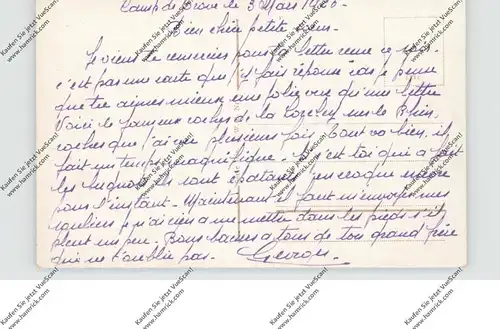 Camp de Bitche le 3 Mars 1930.
Bien chère petite
Je viens de remercier pour la lettre
c'est pas une carte que je fais réponse car je pense
que tu aimes mieux une jolie vue qu'une lettre
Voici le fameux rocher de la Loreley sur le Rhin,
rocher que j'ai vu plusieurs fois. Tout va bien, il
fait un temps magnifique. c'est toi qui a fait
les ils sont épatants, j'en croque encore
pour l'instant. Maintenant il faut m'envoyer mes
souliers je n'ai rien a me mettre dans les pieds s'il
pleut un peu. Bons baisers a tous de ton grand frère
qui ne t'oublie pas. Georges
Kaufen Sie jetzt VueScan!
Kaufen Sie jetzt VueScan!
www.hamrick.com